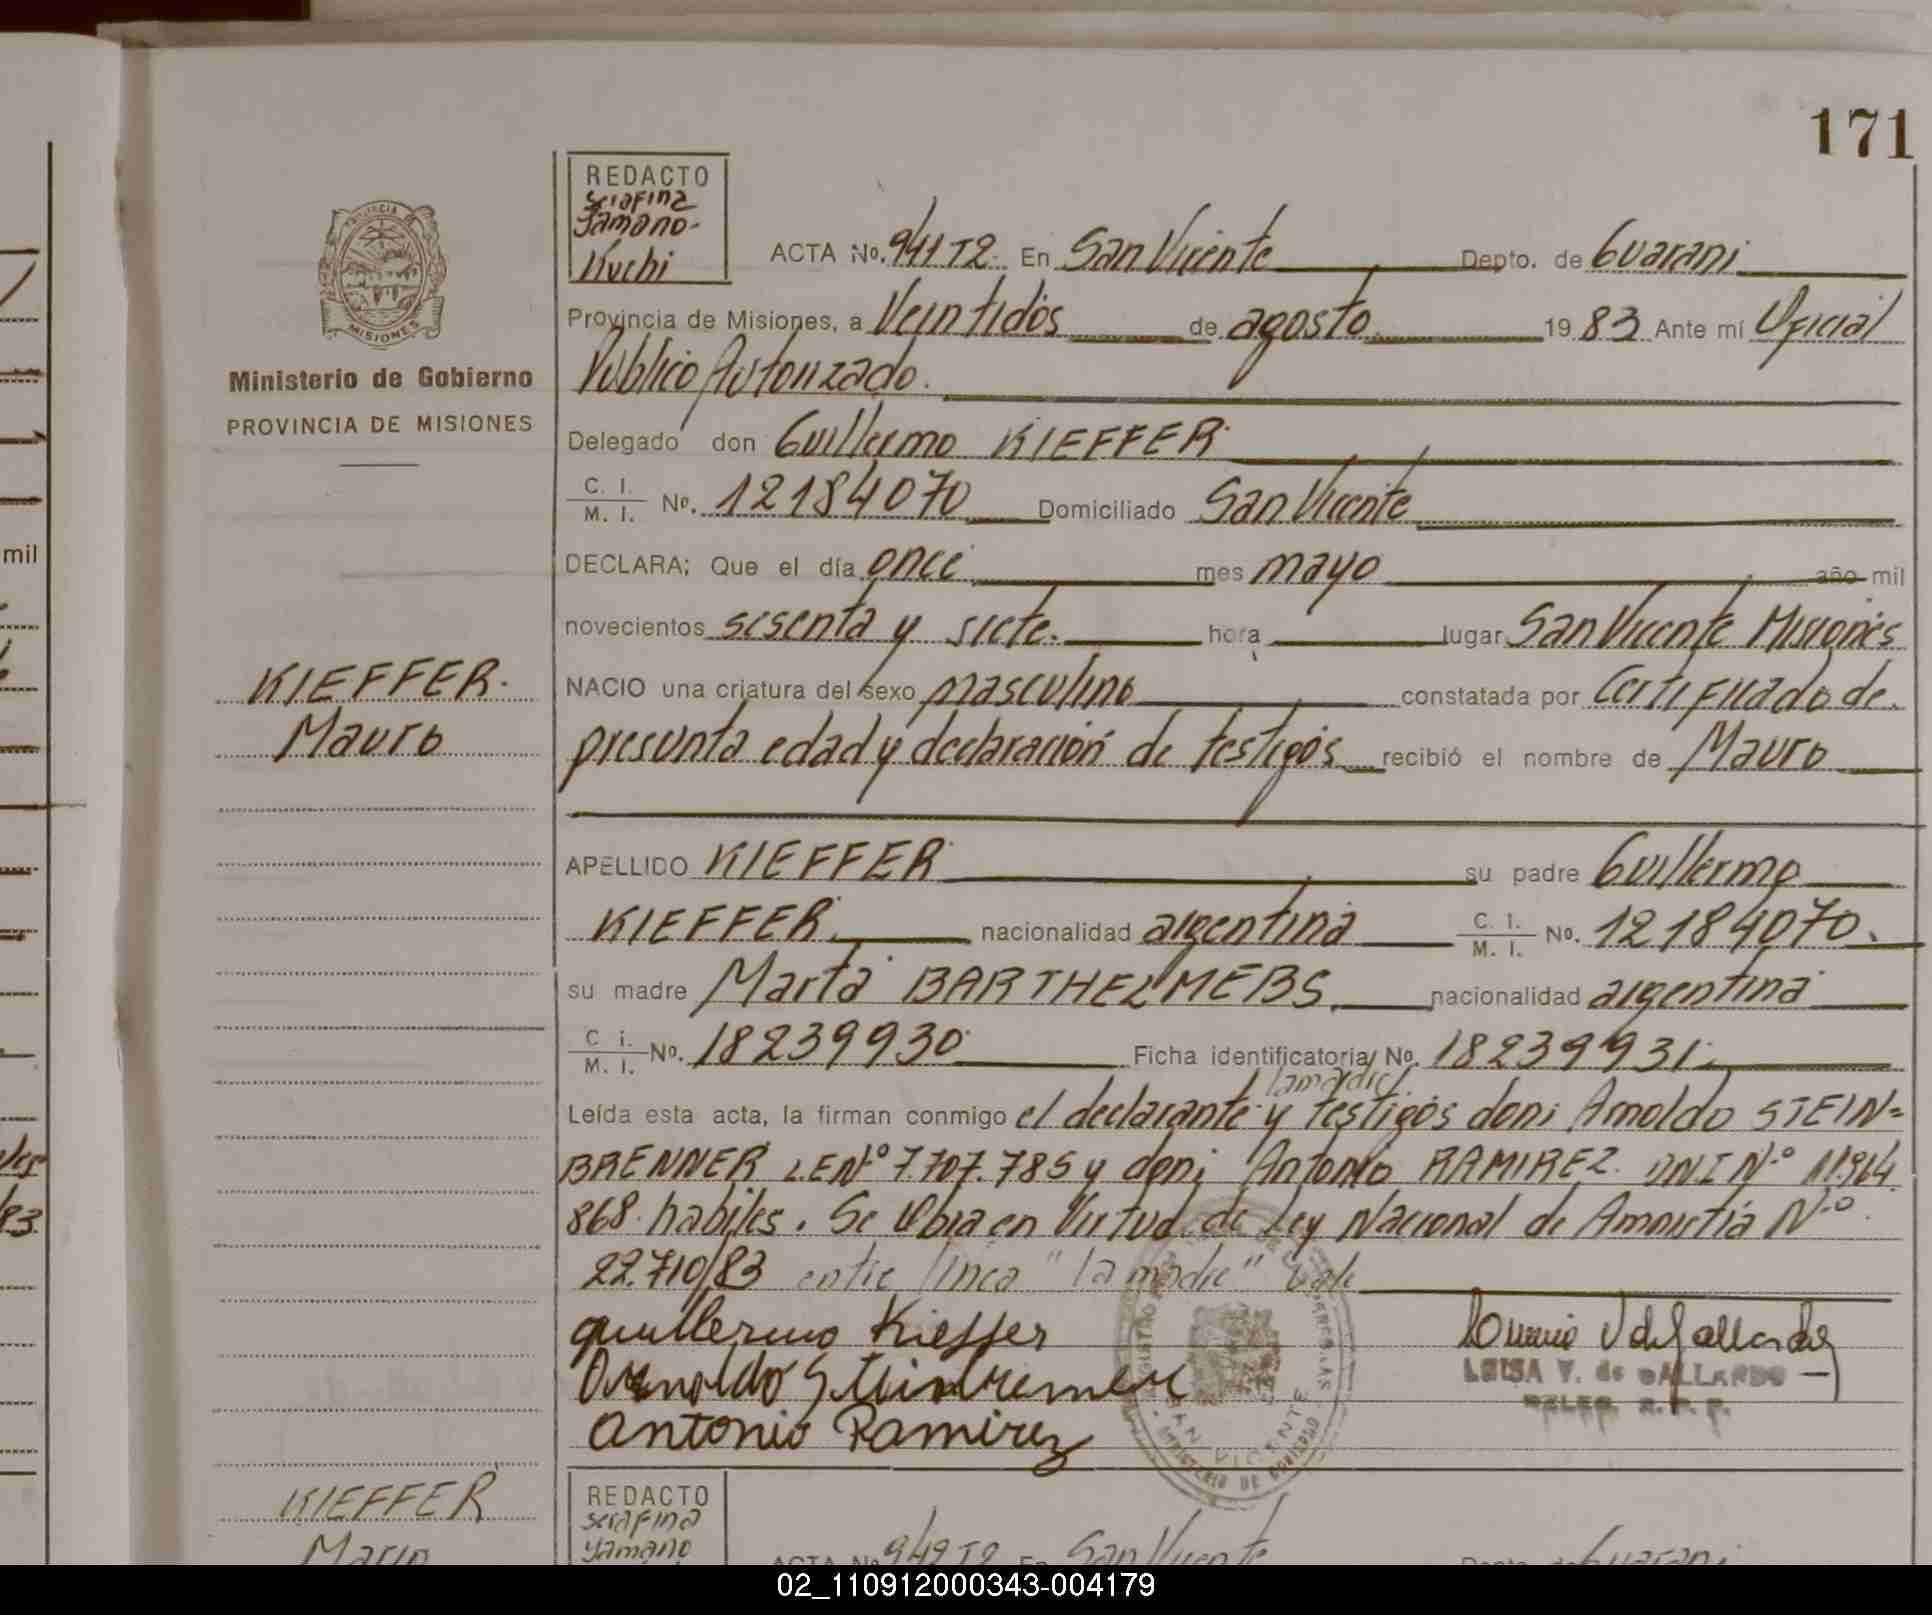 171
REDACTO
Serafina
Yamano-
Kuchi
ACTA No. 941 T2. En San Vicente Depto. de Guarani
Provincia de Misiones, a Veintidós de agosto 19 83 Ante mí Oficial
Público Autorizado.
Ministerio de Gobierno
PROVINCIA DE MISIONES
Delegado don Guillermo KIEFFER
C. I. / M. I. No. 12184070 Domiciliado San Vicente
DECLARA; Que el día once mes mayo año mil
novecientos sesenta y siete. hora lugar San Vicente Misiones
KIEFFER.
Mauro
NACIO una criatura del sexo masculino constatada por Certificado de
presunta edad y declaración de testigos recibió el nombre de Mauro
APELLIDO KIEFFER su padre Guillermo
KIEFFER. nacionalidad argentina C. I. / M. I. No. 12184070.
su madre Marta BARTHELMEBS nacionalidad argentina
C i. / M. I. No. 18239930 Ficha identificatoria No. 18239931.
la madre
Leída esta acta, la firman conmigo el declarante y testigos don: Arnoldo STEIN=
BRENNER L.E Nº 7.707.785 y don: Antonio RAMIREZ. DNI Nº 11.964.
868. habiles. Se Obra en Virtud de Ley Nacional de Amnistia Nº
22.710/83 entre linea "la madre" Vale
guillermo Kieffer
Arnoldo Steinbrenner
Antonio Ramirez
LUISA V. de GALLARDO
DELEG. R. P. P.
SAN VICENTE
MINISTERIO DE GOBIERNO
KIEFFER
Mario
REDACTO
Serafina
Yamano
ACTA No 942 T2 En San Vicente Depto. de Guarani
02_110912000343-004179